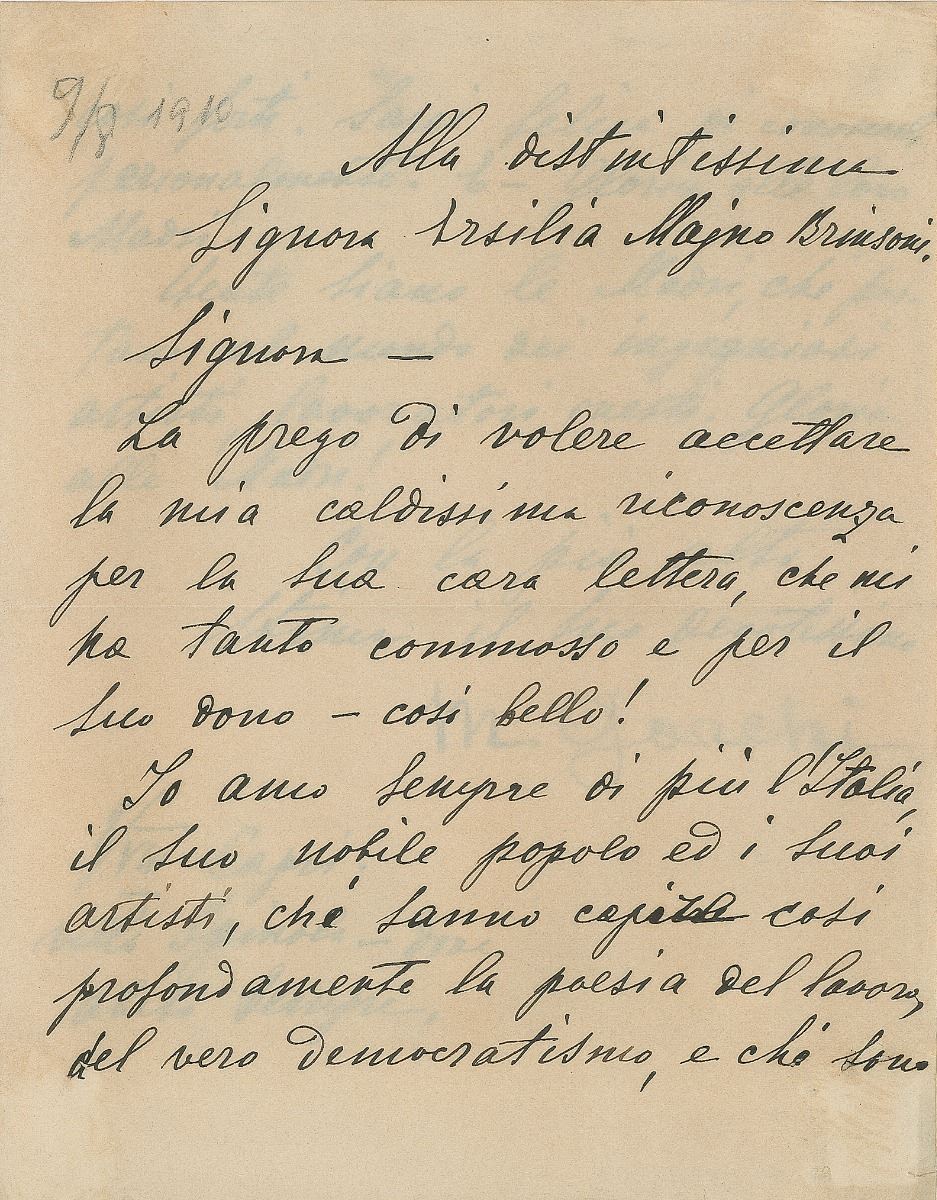 9/8 1910
Alla distintissima
Signora Ersilia Majno Brinsoni.
Signora —
La prego di volere accettare
la mia caldissima riconoscenza
per la sua cara lettera, che mi
ha tanto commosso e per il
suo dono — così bello!
Io amo sempre di più l'Italia,
il suo nobile popolo ed i suoi
artisti, che sanno capire così
profondamente la poesia del lavoro,
del vero democratismo, e che sono